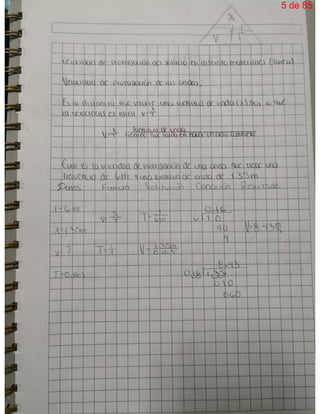 5 de 85
λ
V T
velocidad de propagación del sonido en distintos materiales (tarea)
Velocidad de propagación de las ondas.
Es la distancia que recorre una longitud de onda (λ) por lo que
la velocidad es igual v=λ/T
V=λ/T longitud de onda
tiempo que tarda en
Cual es la velocidad de propagación de una onda que tiene una
frecuencia de 6Hz y una longitud de onda de 1.35m
Datos Formula Sustitución Operación Resultado
F=6Hz 0.16
V=λ/T T=1/6Hz 6 1.0
λ=1.35m 40 V=8.43
4
V=? T=1/F V=1.35m/0.16s
8.43
T=0.16s 0.16 1.35
070
060